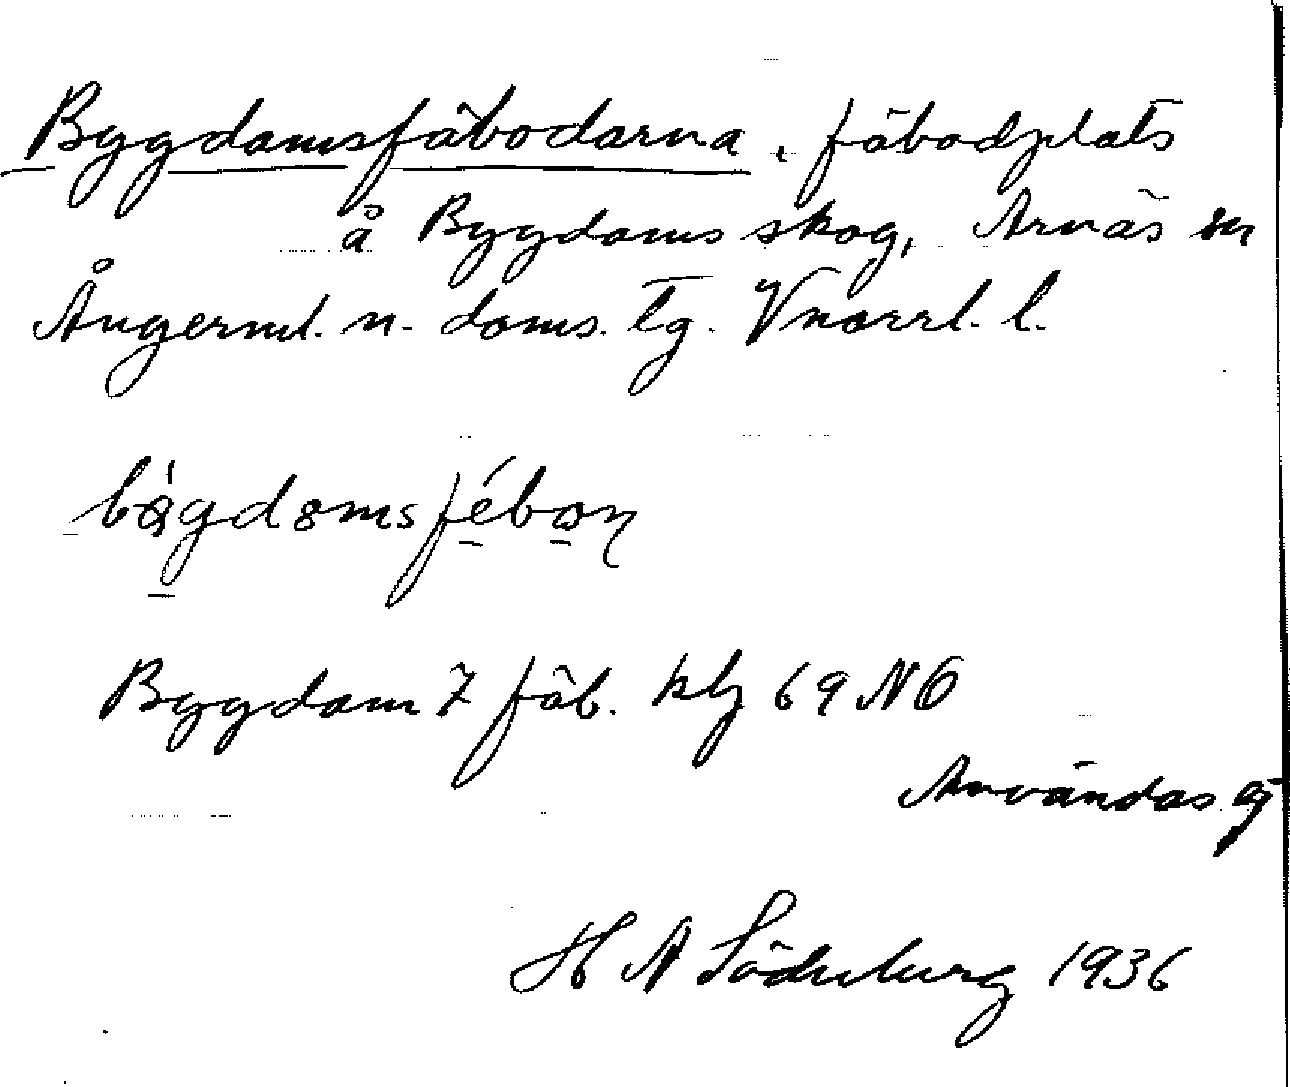 Bygdamsfäbodarna, fäbodplats
å Bygdams skog, Arnäs sn
Ångerml. n. doms. tg. Vnorrl. l.
Bygdam 7 fäb. klg 69 NO
Användas ej
H A Söderberg 1936